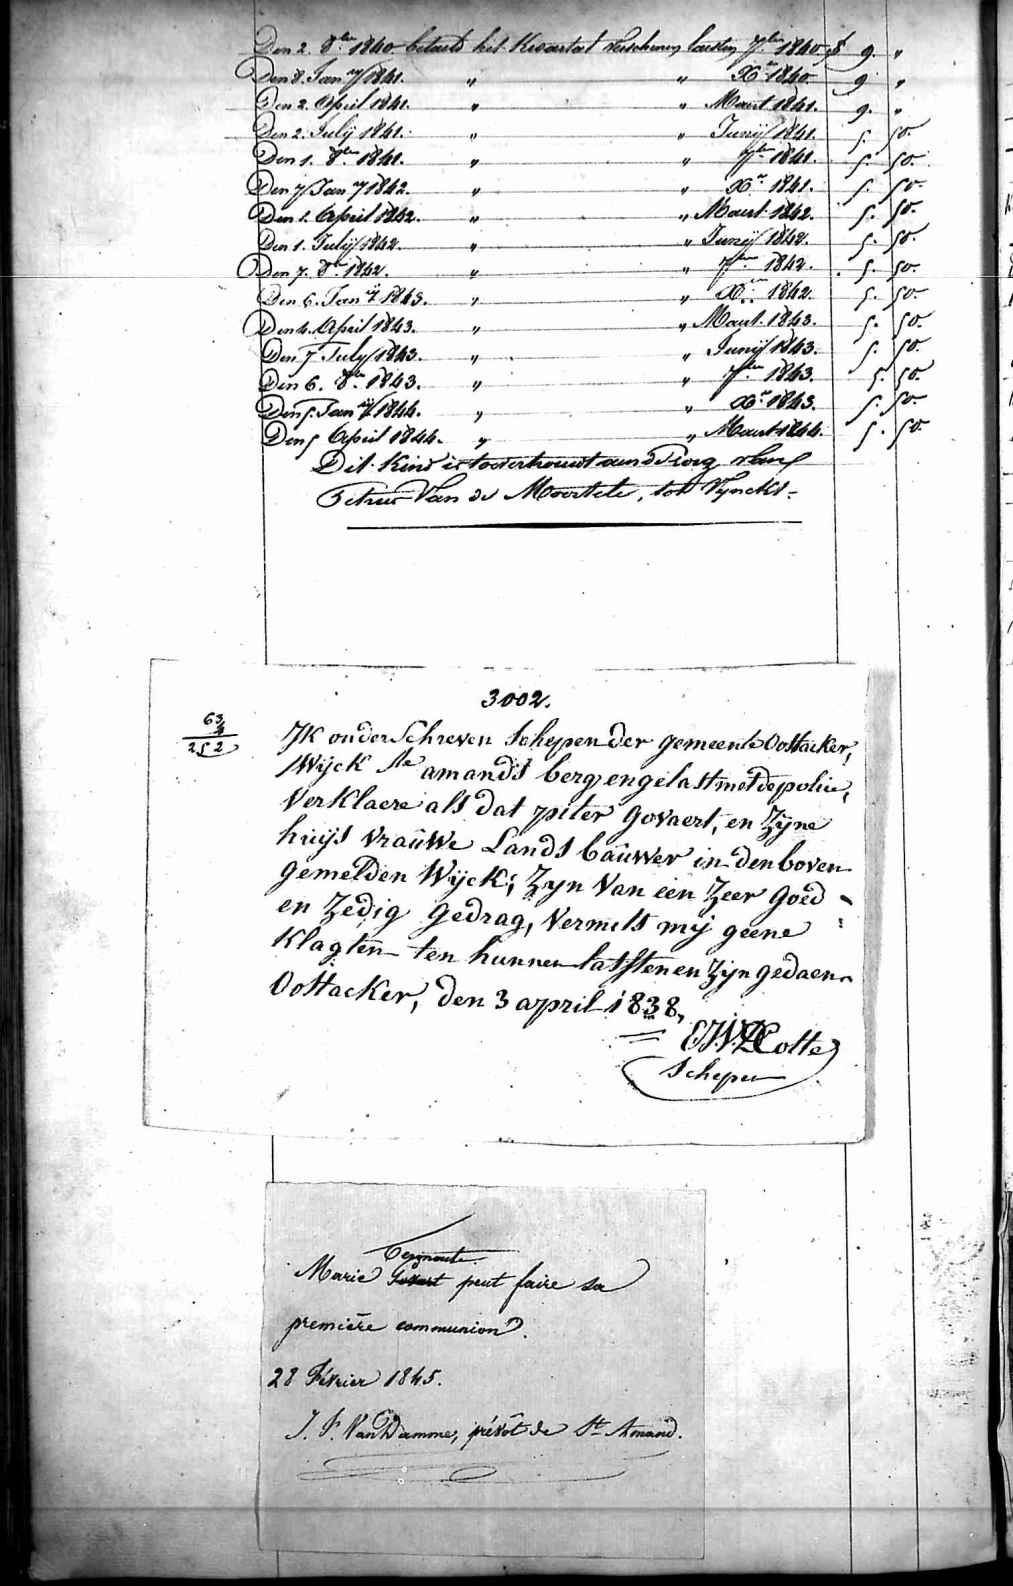 Den 2. 8ber 1840 betaeld het Kwartal verschenen lasten 7ber 1840 f 9. "
Den 8. Jan y 1841. " " Xr 1840 9 "
Den 2. April 1841. " " Maart 1841. 9. "
Den 2. Julij 1841. " " Junij 1841. 5. 50.
Den 1. 8ber 1841. " " 7ber 1841. 5. 50.
Den 7 Jan y 1842. " " Xr 1841. 5. 50.
Den 1. April 1842. " " Maart 1842. 5. 50.
Den 1. Julij 1842. " " Junij 1842. 5. 50.
Den 7. 8ber 1842. " " 7ber 1842. 5. 50.
Den 6. Jan ij 1843. " " Xber 1842. 5. 50.
Den 4. April 1843. " " Maart 1843. 5. 50.
Den 7 July 1843. " " Junij 1843. 5. 50.
Den 6. 8ber 1843. " " 7ber 1843. 5. 50.
Den 5. Jan ij 1844. " " Xr 1843. 5. 50.
Den 5 April 1844. " " Maart 1844. 5. 50.
Dit Kind is toevertrouwt aen de zorg van
Petrus Van de Moortele, tot Vynckt.
3002.
63
4
252
JK onderSchreven Schepen der gemeente Oostacker,
Wijck Ste amands berg, engelast met de policie,
VerKlaere als dat piter Govaert, en Zijne
huijs vrauwe Lands bauwer in den boven
gemelden Wijck; Zyn Van een Zeer Goed
en Zedig Gedrag, Vermits mij geene
Klagten ten hunnen latsten en Zijn gedaen
Oostacker, den 3 april 1838,
Colle
Schepen
Marie Govaert peut faire sa
première communion.
28 Février 1845.
J. F. Van Damme, prévôt de St. Amand.